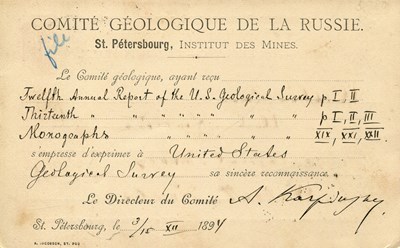 COMITÉ GÉOLOGIQUE DE LA RUSSIE.
file
St. Pétersbourg, INSTITUT DES MINES.
Le Comité géologique, ayant reçu
Twelfth Annual Report of the U.S. Geological Survey p I, II
Thirtanth " " " " " " p I, II, III
Monographs " " " " XIX, XXI, XXII.
s'empresse d'exprimer à United States
Geological Survey sa sincère reconnaissance.
Le Directeur du Comité A. Karpinsky
St. Pétersbourg, le 3/15 XII 1894